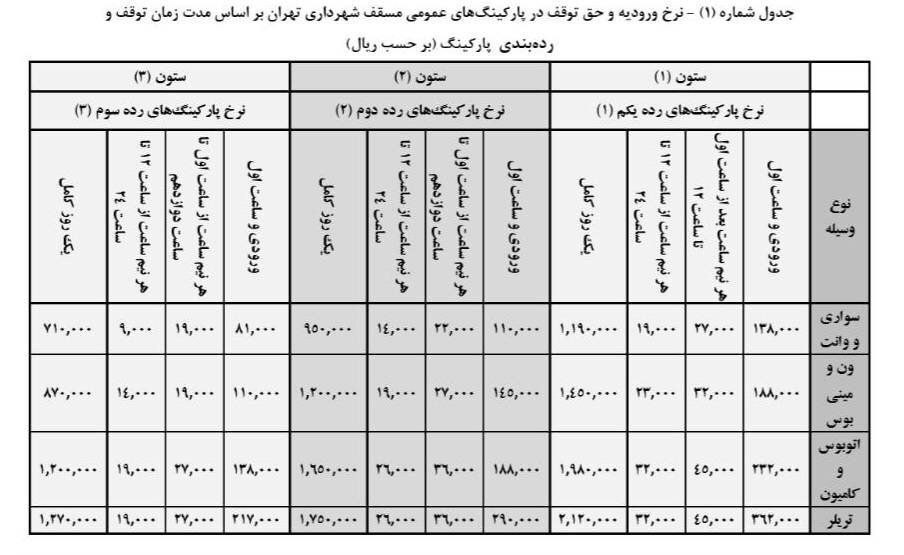 جدول شماره (۱) – نرخ ورودیه و حق توقف در پارکینگ‌های عمومی مسقف شهرداری تهران بر اساس مدت زمان توقف و
رده‌بندی پارکینگ (بر حسب ریال)
ستون (۱) ستون (۲) ستون (۳)
نرخ پارکینگ‌های رده یکم (۱) نرخ پارکینگ‌های رده دوم (۲) نرخ پارکینگ‌های رده سوم (۳)
نوع
وسیله
ورودی و ساعت اول
هر نیم ساعت بعد از ساعت اول
تا ساعت ۱۲
هر نیم ساعت از ساعت ۱۲ تا
ساعت ۲۴
یک روز کامل
ورودی و ساعت اول
هر نیم ساعت از ساعت اول تا
ساعت دوازدهم
هر نیم ساعت از ساعت ۱۲ تا
ساعت ۲۴
یک روز کامل
ورودی و ساعت اول
هر نیم ساعت از ساعت اول تا
ساعت دوازدهم
هر نیم ساعت از ساعت ۱۲ تا
ساعت ۲۴
یک روز کامل
سواری
و وانت
۱۳۸,۰۰۰ ۲۷,۰۰۰ ۱۹,۰۰۰ ۱,۱۹۰,۰۰۰ ۱۱۰,۰۰۰ ۲۲,۰۰۰ ۱٤,۰۰۰ ۹۵۰,۰۰۰ ۸۱,۰۰۰ ۱۹,۰۰۰ ۹,۰۰۰ ۷۱۰,۰۰۰
ون و
مینی
بوس
۱۸۸,۰۰۰ ۳۲,۰۰۰ ۲۳,۰۰۰ ۱,٤۵۰,۰۰۰ ۱٤۵,۰۰۰ ۲۷,۰۰۰ ۱۹,۰۰۰ ۱,۲۰۰,۰۰۰ ۱۱۰,۰۰۰ ۱۹,۰۰۰ ۱٤,۰۰۰ ۸۷۰,۰۰۰
اتوبوس
و
کامیون
۲۳۲,۰۰۰ ٤۵,۰۰۰ ۳۲,۰۰۰ ۱,۹۸۰,۰۰۰ ۱۸۸,۰۰۰ ۳۶,۰۰۰ ۲۶,۰۰۰ ۱,۶۵۰,۰۰۰ ۱۳۸,۰۰۰ ۲۷,۰۰۰ ۱۹,۰۰۰ ۱,۲۰۰,۰۰۰
تریلر ۳۶۲,۰۰۰ ٤۵,۰۰۰ ۳۲,۰۰۰ ۲,۱۲۰,۰۰۰ ۲۹۰,۰۰۰ ۳۶,۰۰۰ ۲۶,۰۰۰ ۱,۷۵۰,۰۰۰ ۲۱۷,۰۰۰ ۲۷,۰۰۰ ۱۹,۰۰۰ ۱,۲۷۰,۰۰۰